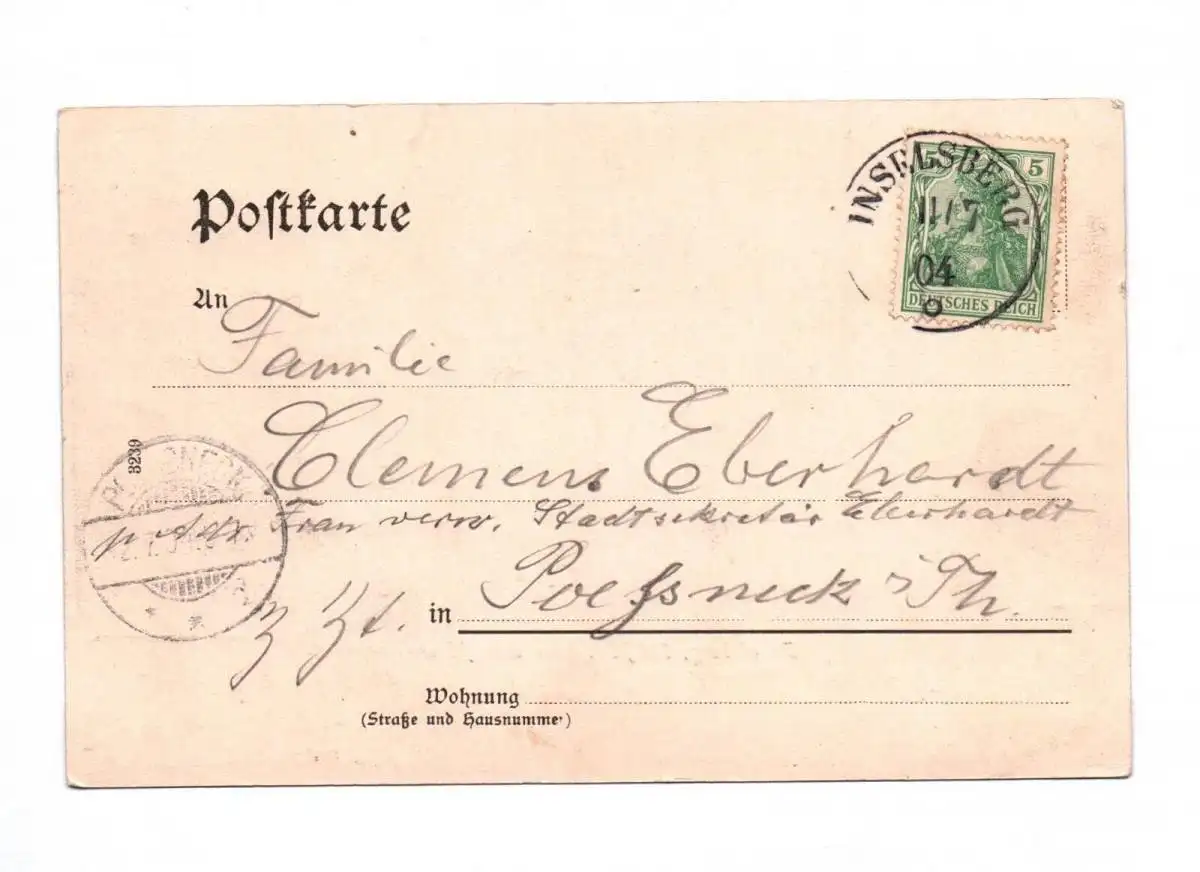 Postkarte
5 5
INSELSBERG
11/7
04
DEUTSCHES REICH
An
Familie
3239
Clemens Eberhardt
p. Adr. Frau verw. Stadtsekretär Eberhardt
z. Zt. in Poeßneck i/Th.
Wohnung
(Straße und Hausnummer)